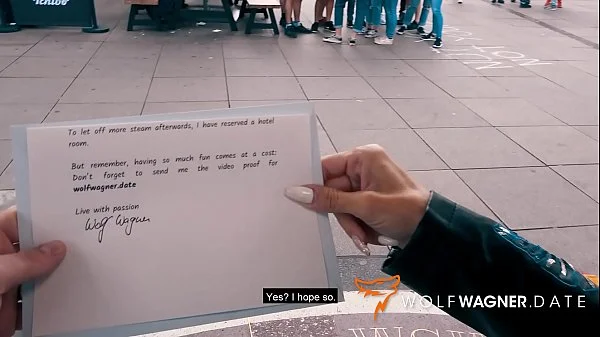 Ichibo
To let off more steam afterwards, I have reserved a hotel
room.
But remember, having so much fun comes at a cost:
Don't forget to send me the video proof for
wolfwagner.date
Live with passion
Wolf Wagner
Yes? I hope so.
WOLFWAGNER.DATE